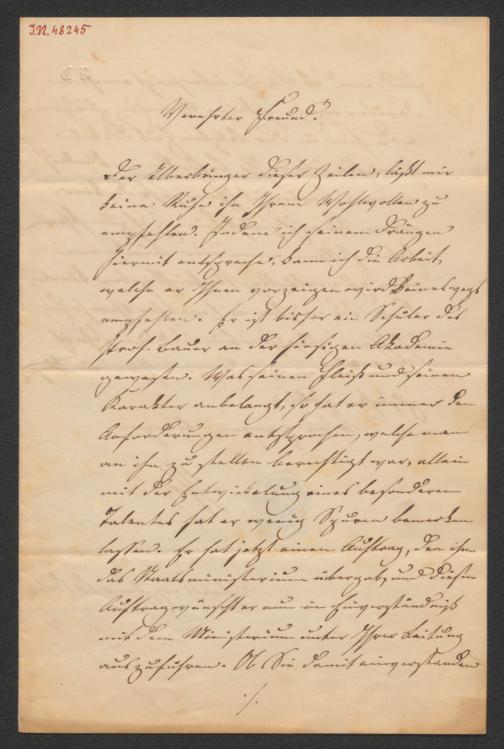 I.N. 48245
Verehrter Freund!
Der Überbringer dieser Zeilen, läßt mir
keine Ruhe ihn Ihrem Wohlwollen zu
empfehlen. Indem ich seinem Drängen
hiermit entspreche, kann ich die Arbeit,
welche er Ihnen vorzeigen wird keineswegs
empfehlen. Er ist bisher ein Schüler des
Prof. Bauer an der hiesigen Akademie
gewesen. Was seinen Fleiß und seinen
Karakter anbelangt, so hat er immer den
Anforderungen entsprochen, welche man
an ihn zu stellen berechtigt war, allein
mit der Entwickelung eines besonderen
Talentes hat er wenig Spuren bemerken
lassen. Er hat jetzt einen Auftrag, den ihm
das Staatsministerium übergab, und diesen
Auftrag wünscht er nun im Einverständniß
mit dem Ministerium unter Ihrer Leitung
auszuführen. Ob Sie damit einverstanden
./.